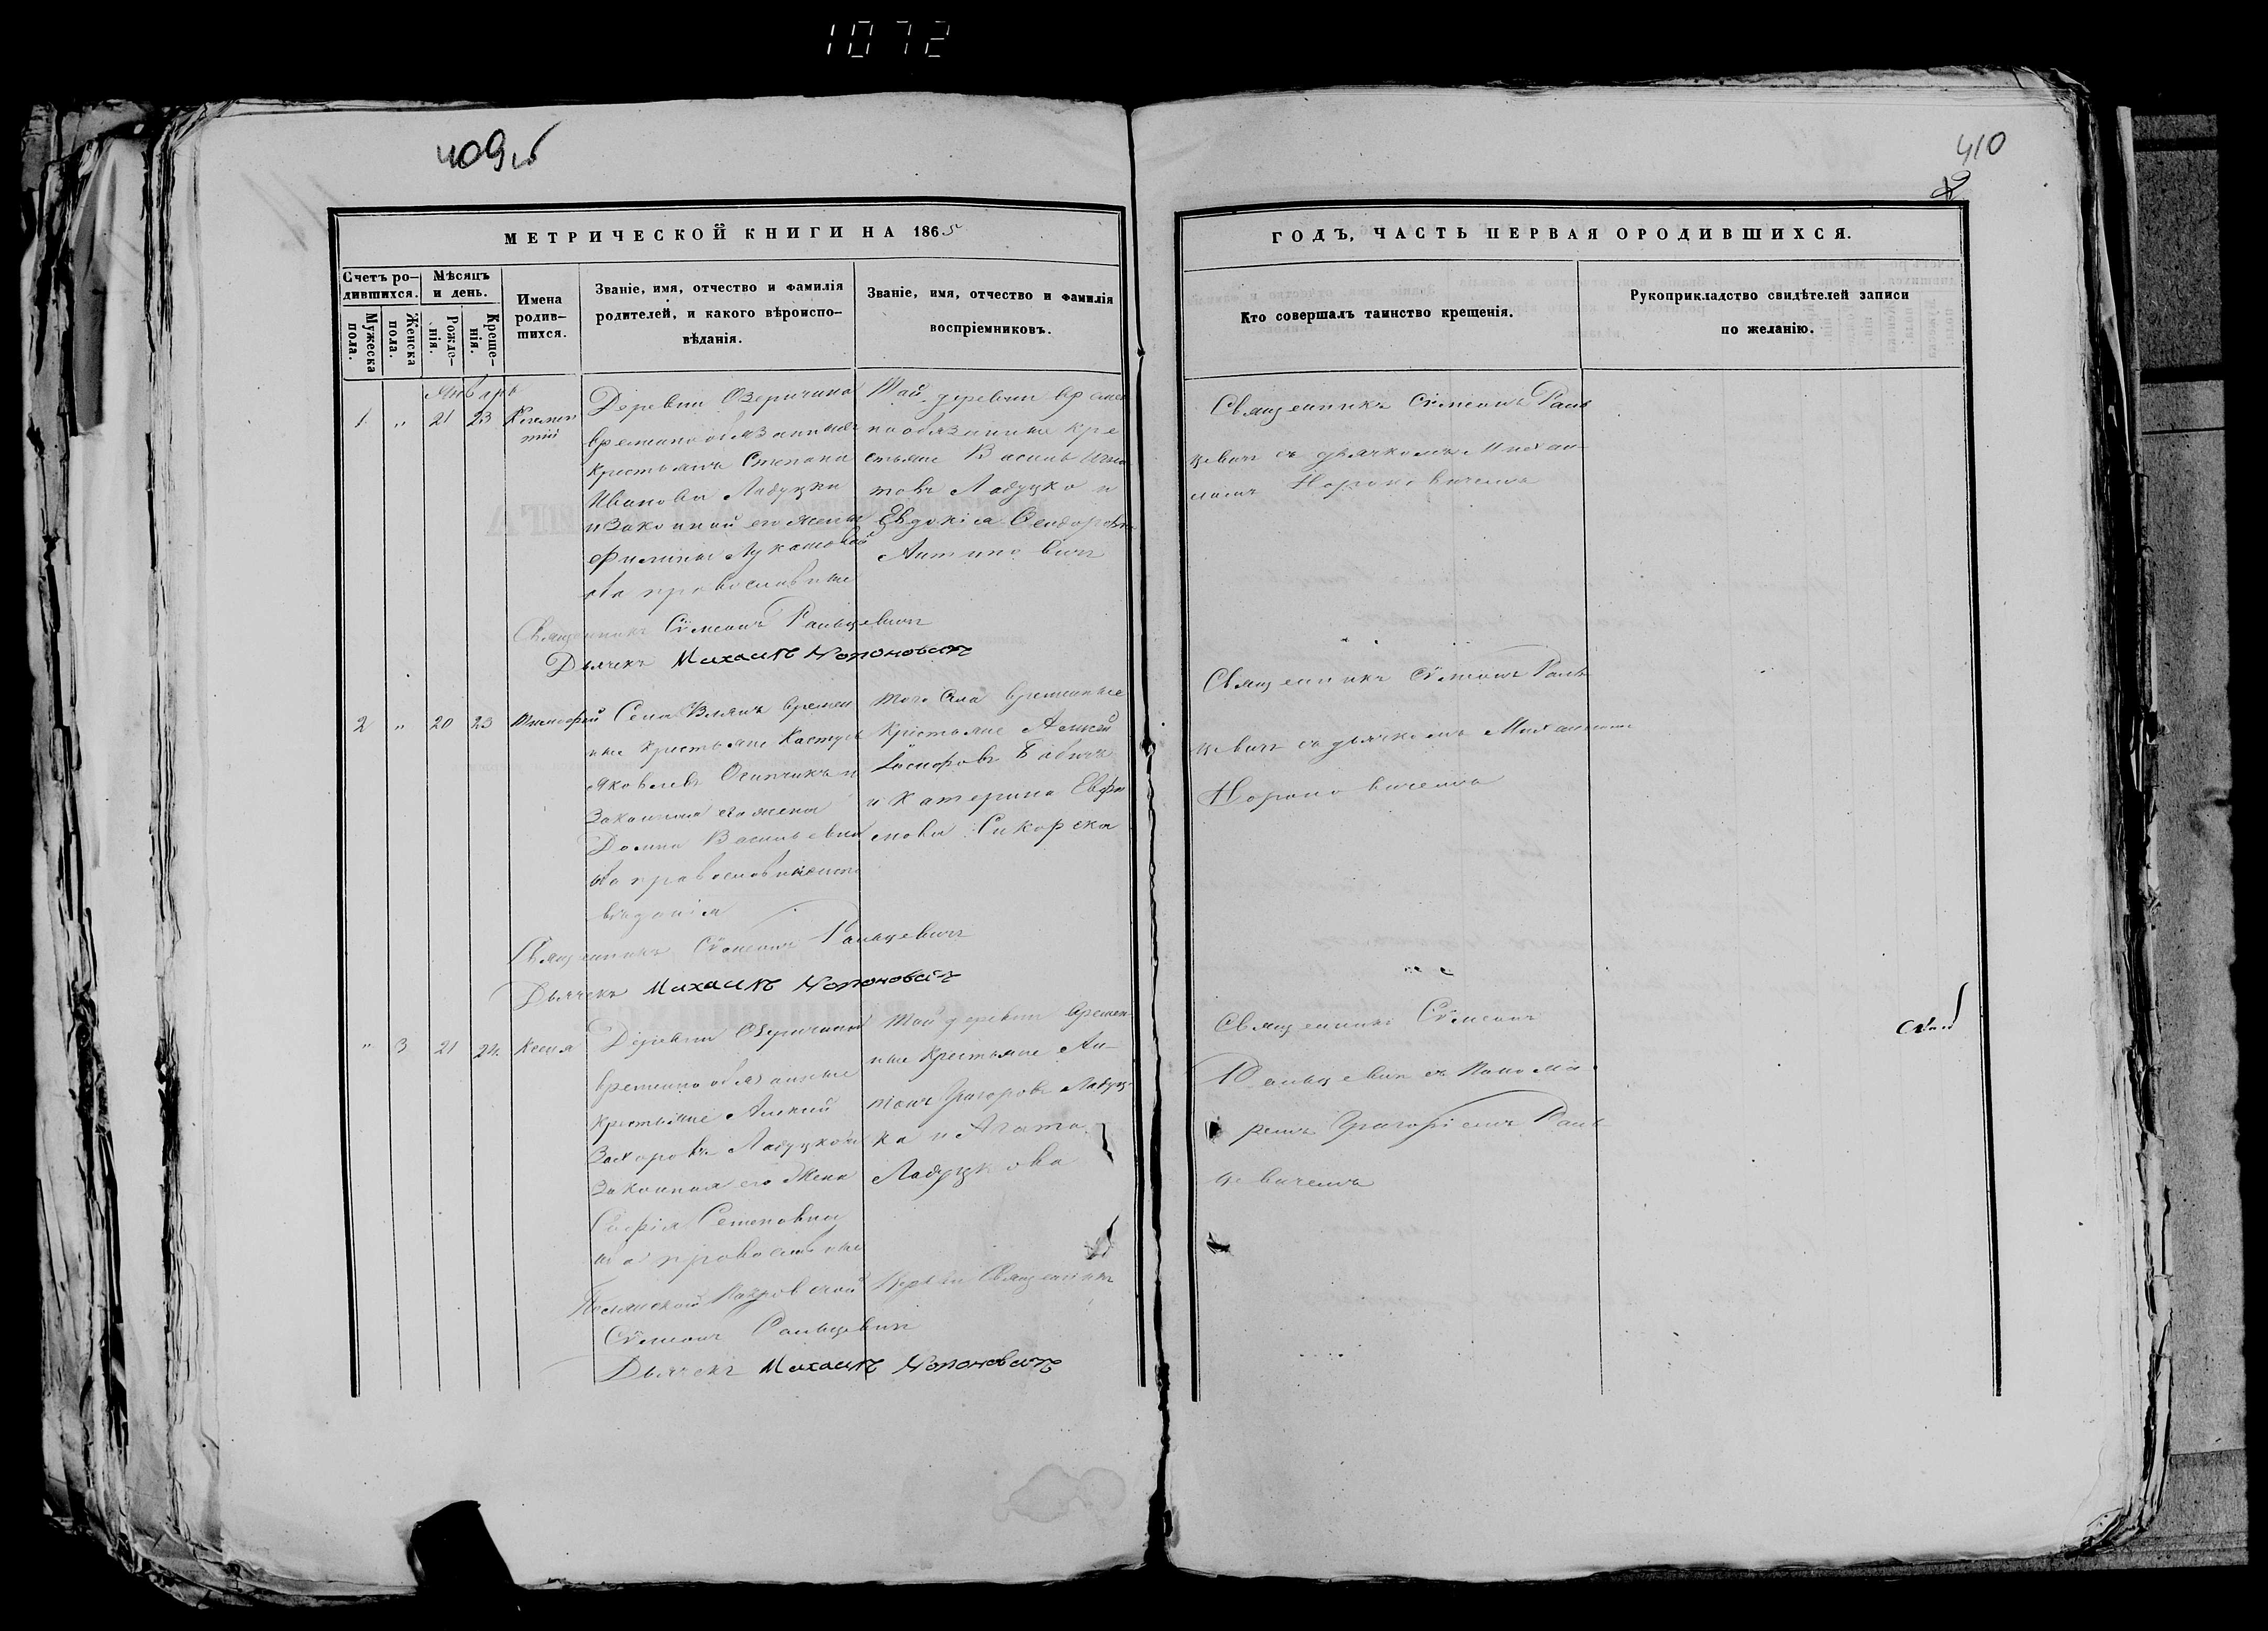 1072
409 об
410
2
МЕТРИЧЕСКОЙ КНИГИ НА 1865
ГОДЪ, ЧАСТЬ ПЕРВАЯ О РОДИВШИХСЯ.
Счетъ ро-
дившихся.
Мужеска
пола.
Женска
пола.
Мѣсяцъ
и день.
Рожде-
нія.
Креще-
нія.
Имена
родив-
шихся.
Званіе, имя, отчество и фамилія
родителей, и какого вѣроиспо-
вѣданія.
Званіе, имя, отчество и фамилія
воспріемниковъ.
Кто совершалъ таинство крещенія.
Рукоприкладство свидѣтелей записи
по желанію.
Январь
1 " 21 23
Деревни Озеричина
временнообязанные
крестьянъ Степана
Иванова Ладуцки
и законной его жены
Лукашовой
оба православные
Той деревни времен
нообязанные кре
стьяне Василь Игна
товъ Ладуцко и
Евдокія Феодорова
Антиповичъ
Священникъ Сѵмеонъ Раль
цевичъ съ дьячкомъ Михаи-
ломъ Нороновичемъ
Священникъ Сѵмеонъ Ральцевичъ
Дьячекъ Михаилъ Нороновичъ
2 " 20 23 Тимофей
Села времен
ные крестьяне
Яковлевъ Осипчикъ и
законная его жена
Домна Васильевна
оба православнаго испо
вѣданія
Того села временные
крестьяне Алексѣй
Бабичъ
и Катерина Евфи
мова Сикорска
Священникъ Сѵмеонъ Раль
цевичъ съ дьячкомъ Михаиломъ
Нороновичемъ
Священникъ Сѵмеонъ Ральцевичъ
Дьячекъ Михаилъ Нороновичъ
" 3 21 24 Ксенія
Деревни Озеричина
временнообязанные
крестьяне Алексѣй
Захаровъ Ладуцко и
законная его жена
Софія Семеновна
оба православные
Той деревни времен
ные крестьяне Ан-
тонъ Григоровъ Ладуц-
ка и Агата
Ладуцкова
Священникъ Сѵмеонъ
Ральцевичъ съ Понома
ремъ Григоріемъ Раль
цевичемъ
Покровской Церкви Священникъ
Сѵмеонъ Ральцевичъ
Дьячекъ Михаилъ Нороновичъ